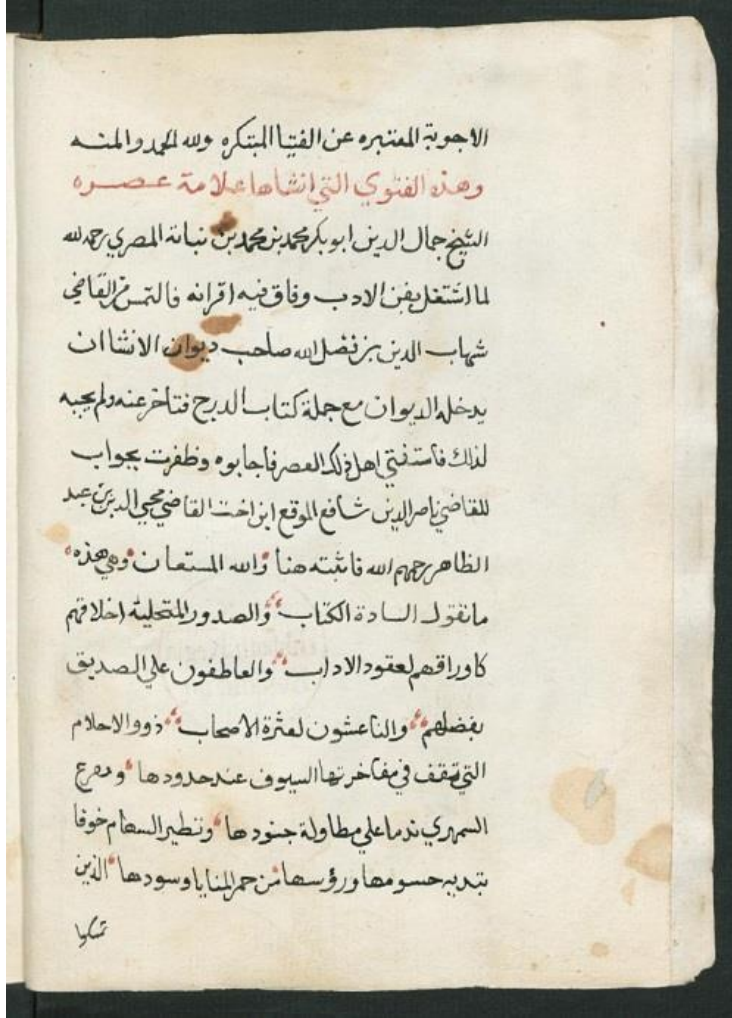 الاجوبة المعتبره عن الفتيا المبتكره ولله الحمد والمنه
وهذه الفتوي التي انشاها علامة عصره
الشيخ جمال الدين ابو بكر محمد بن محمد بن نباتة المصري رحمه الله
لما اشتغل بفن الادب وفاق فيه اقرانه فالتمس من القاضي
شهاب الدين بن فضل الله صاحب ديوان الانشا ان
يدخله الديوان مع جملة كتاب الدرج فتاخر عنه ولم يجبه
لذلك فاستفتي اهل ذلك العصر فاجابوه وظفرت بجواب
للقاضي ناصر الدين شافع الموقع ابن اخت القاضي محيي الدين بن عبد
الظاهر رحمهم الله فاثبته هنا والله المستعان وهي هذه
ما تقول السادة الكتاب والصدور المتحلية اخلاقهم
كاوراقهم لعقود الاداب والعاطفون علي الصديق
بفضلهم والناعشون لعثرة الاصحاب ذووا الاحلام
التي تقف في مفاخرتها السيوف عند حدودها
السمهري ندما علي مطاولة جنودها وتطير السهام خوفا
حسومها ورؤسها من حمر المنايا وسودها الذين